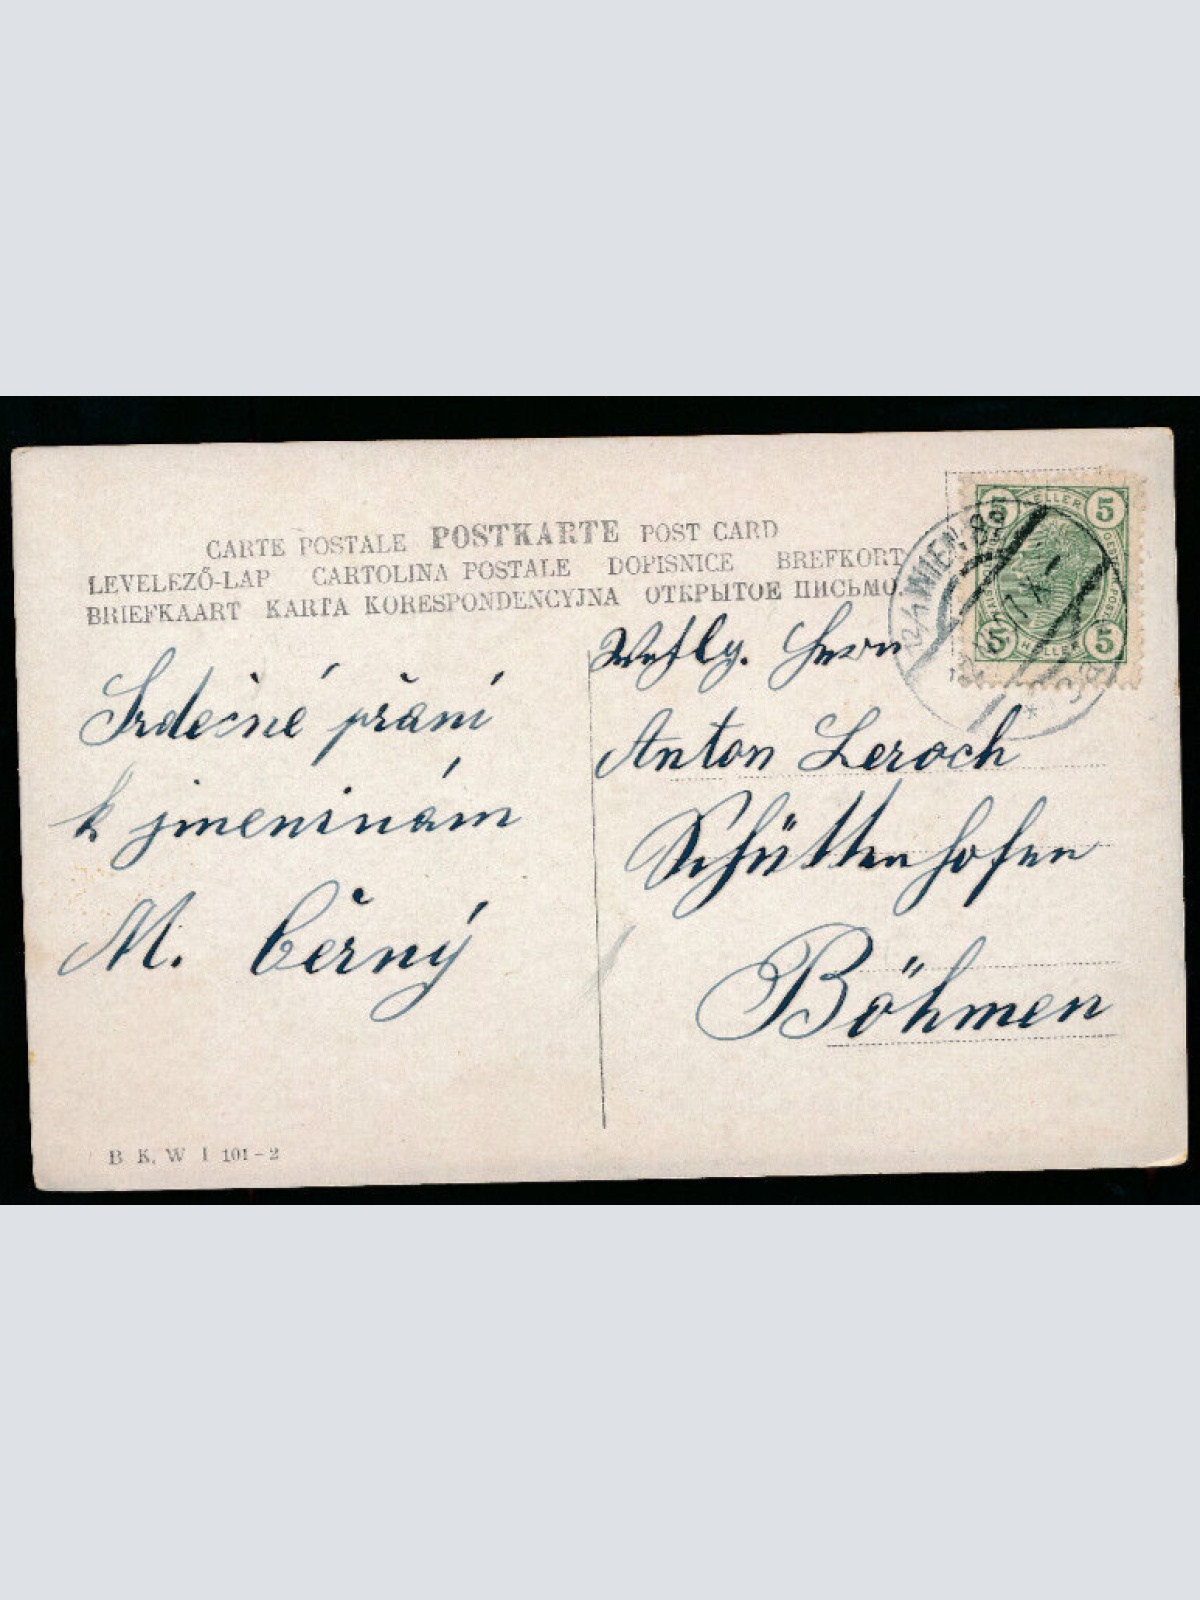 CARTE POSTALE POSTKARTE POST CARD
LEVELEZŐ-LAP CARTOLINA POSTALE DOPISNICE BREFKORT
BRIEFKAART KARTA KORESPONDENCYJNA ОТКРЫТОЕ ПИСЬМО
Srdečné přání
k jmeninám
M. Černý
Herrn
Anton Leroch
Schüttenhofen
Böhmen
B. K. W. I 101-2
5 HELLER 5
5 HELLER 5
WIEN